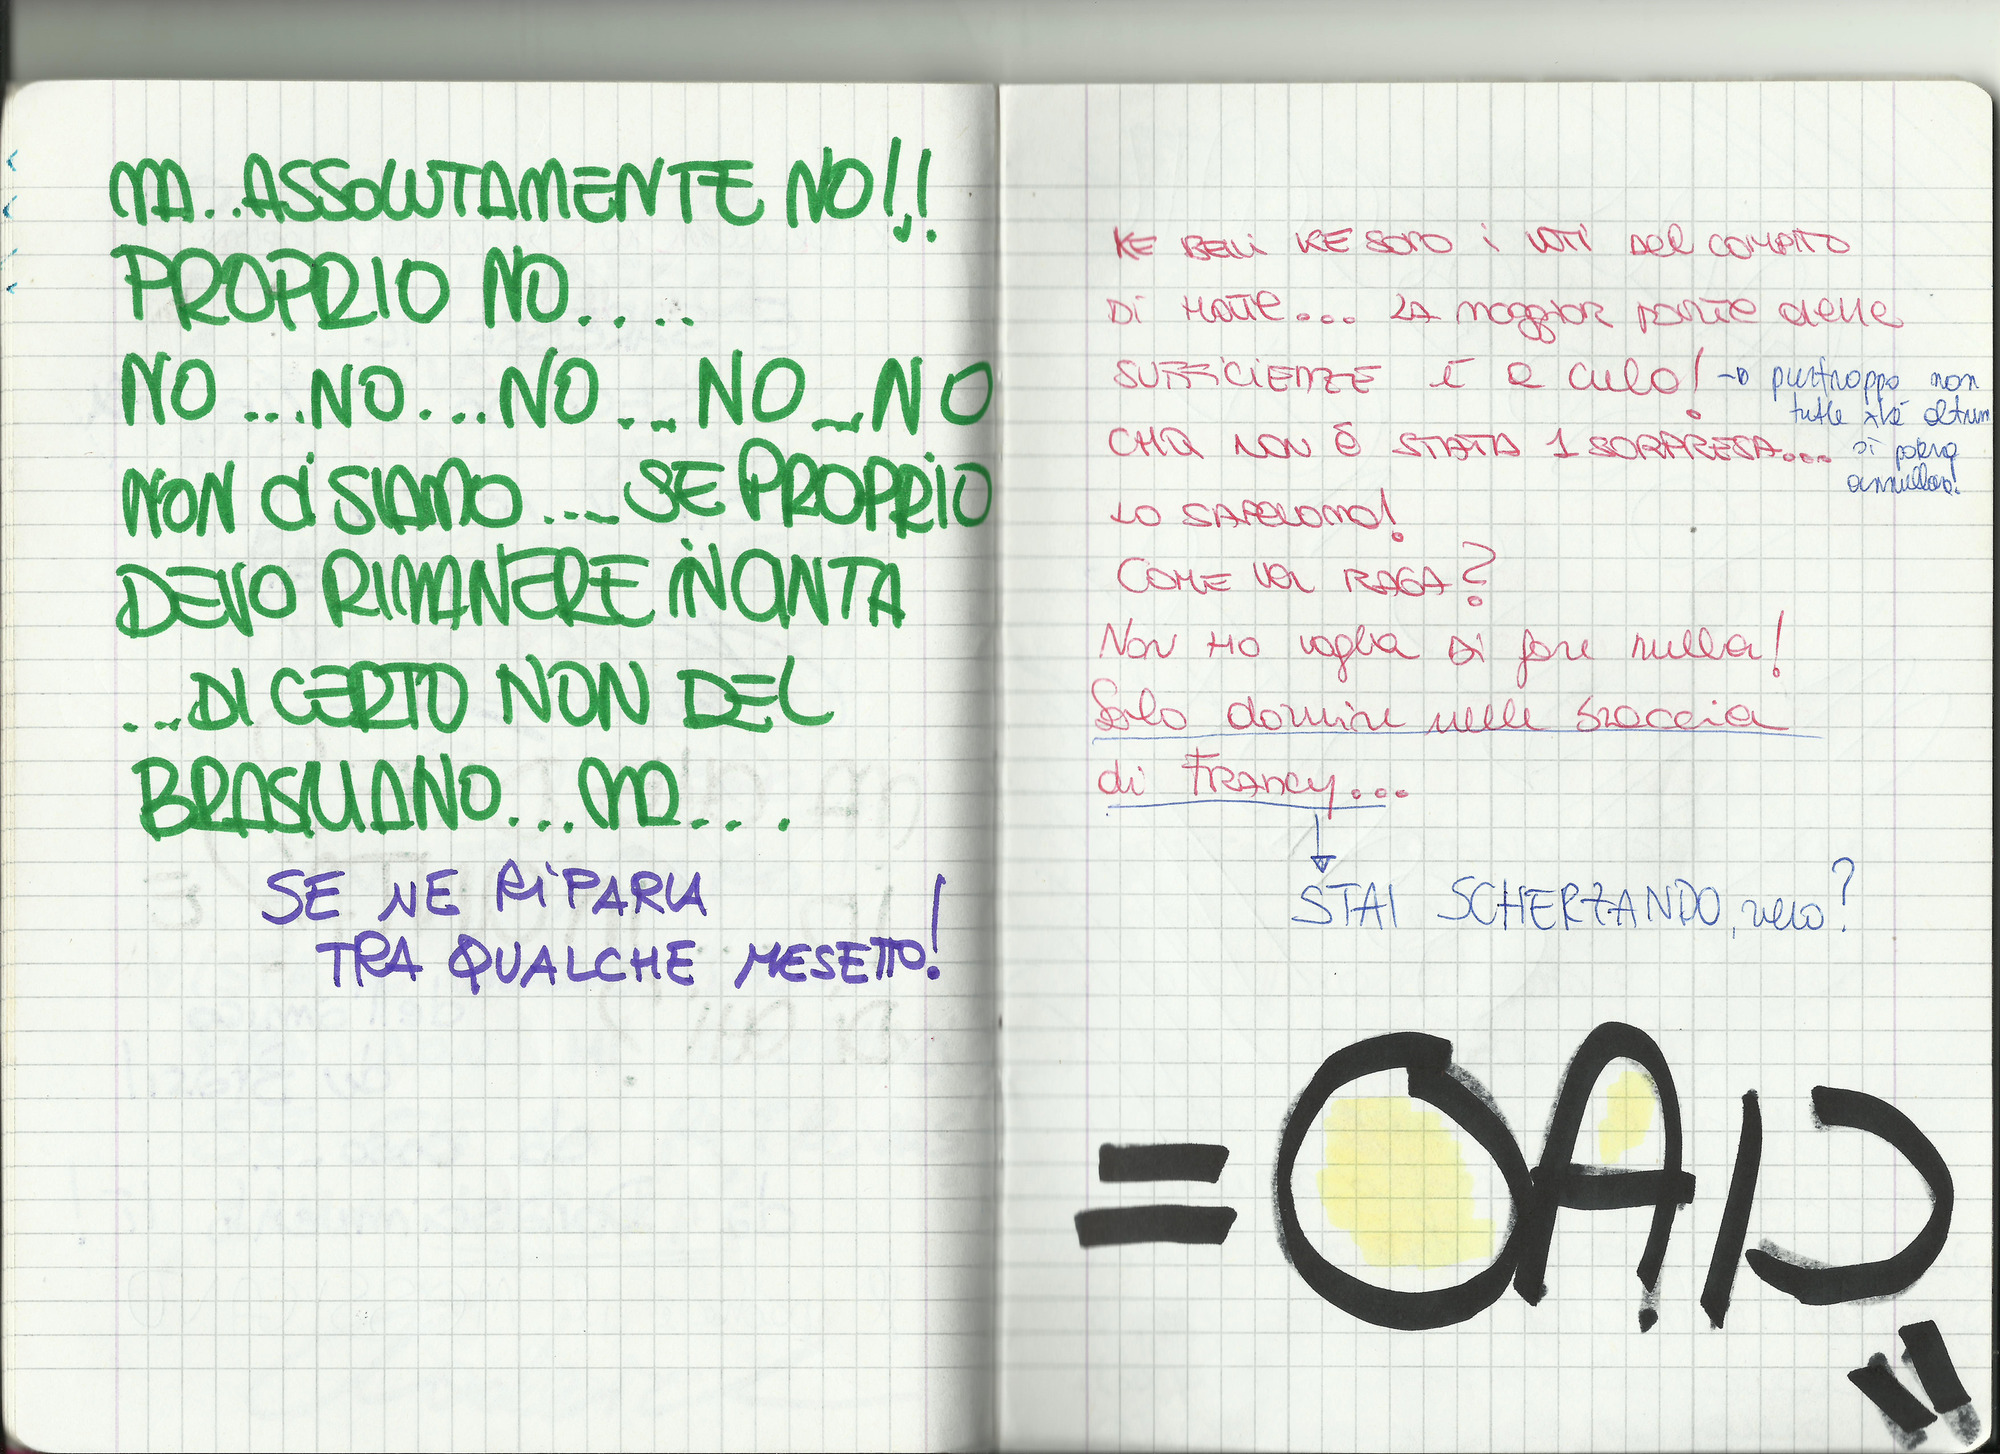 MA..ASSOLUTAMENTE NO!!
PROPRIO NO....
NO...NO...NO...NO...NO
NON CI SIAMO....SE PROPRIO
DEVO RIMANERE INCINTA
...DI CERTO NON DEL
BRASILIANO...MA...
SE NE RIPARLA
TRA QUALCHE MESETTO!
KE BELLI KE SONO i VOTI DEL COMPITO
Di MATE... LA maggior parte delle
SUFFICIENZE È a culo!
purtroppo non
tutte xkè altrim
CHA NON È STATA 1 SORPRESA...
si poteva
annullare!
LO SAPEVAMO!
COME VA RAGA?
Non HO voglia Di fare nulla!
Solo dormire nelle braccia
di Francy...
STAI SCHERZANDO, vero?